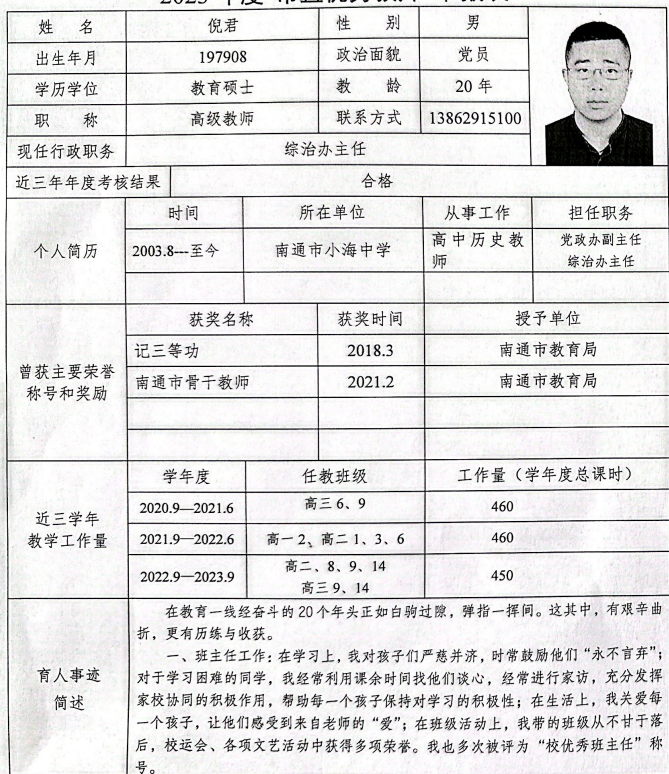 姓 名 倪君 性 别 男
出生年月 197908 政治面貌 党员
学历学位 教育硕士 教 龄 20 年
职 称 高级教师 联系方式 13862915100
现任行政职务 综治办主任
近三年年度考核结果 合格
个人简历 时间 所在单位 从事工作 担任职务
2003.8---至今 南通市小海中学 高中历史教师 党政办副主任 综治办主任
曾获主要荣誉称号和奖励 获奖名称 获奖时间 授予单位
记三等功 2018.3 南通市教育局
南通市骨干教师 2021.2 南通市教育局
近三学年教学工作量 学年度 任教班级 工作量（学年度总课时）
2020.9—2021.6 高三 6、9 460
2021.9—2022.6 高一 2、高二 1、3、6 460
2022.9—2023.9 高二、8、9、14 高三 9、14 450
育人事迹简述
在教育一线经奋斗的 20 个年头正如白驹过隙，弹指一挥间。这其中，有艰辛曲
折，更有历练与收获。
一、班主任工作：在学习上，我对孩子们严慈并济，时常鼓励他们“永不言弃”；
对于学习困难的同学，我经常利用课余时间找他们谈心，经常进行家访，充分发挥
家校协同的积极作用，帮助每一个孩子保持对学习的积极性；在生活上，我关爱每
一个孩子，让他们感受到来自老师的“爱”；在班级活动上，我带的班级从不甘于落
后，校运会、各项文艺活动中获得多项荣誉。我也多次被评为“校优秀班主任”称
号。